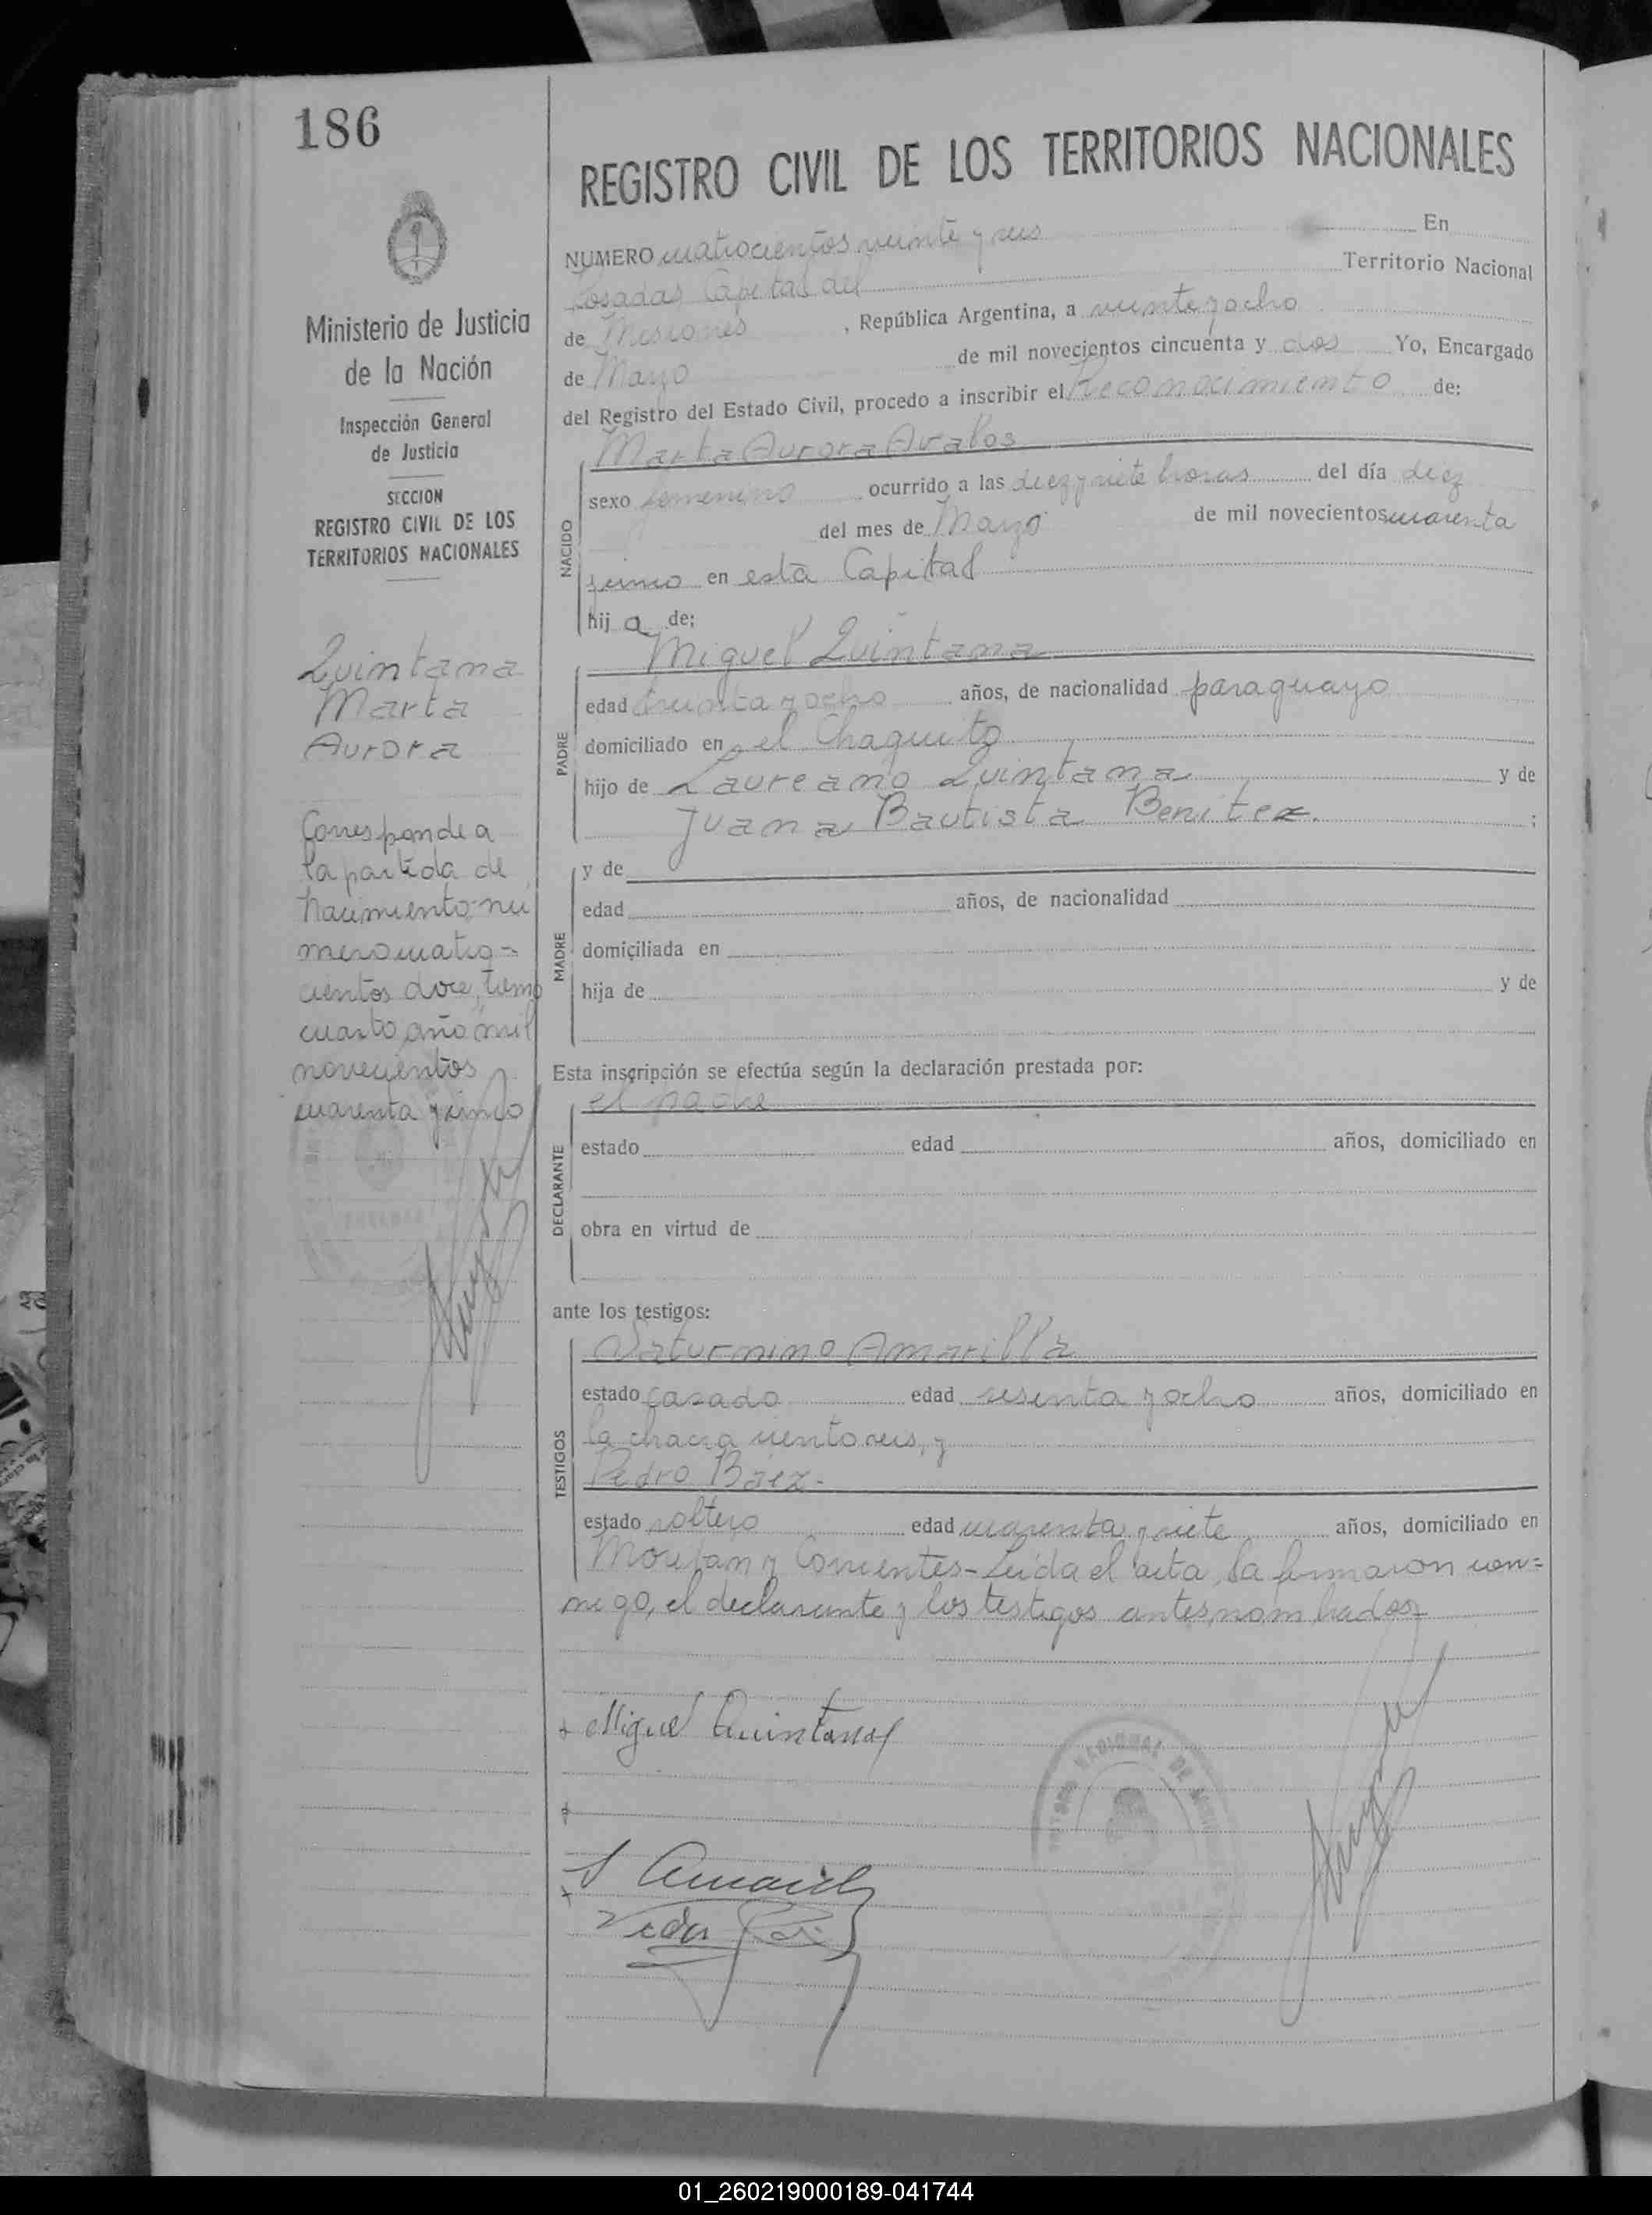 186
REGISTRO CIVIL DE LOS TERRITORIOS NACIONALES
Ministerio de Justicia
de la Nación
Inspección General
de Justicia
SECCION
REGISTRO CIVIL DE LOS
TERRITORIOS NACIONALES
Quintana
Marta
Aurora
Corresponde a
la partida de
nacimiento nú
mero cuatro=
cientos doce, tomo
cuarto año mil
novecientos
cuarenta y cinco
NUMERO cuatrocientos veinte y seis En
Posadas Capital del Territorio Nacional
de Misiones, República Argentina, a veinte y ocho
de Mayo de mil novecientos cincuenta y dos Yo, Encargado
del Registro del Estado Civil, procedo a inscribir el Reconocimiento de:
NACIDO
Marta Aurora Avalos
sexo femenino ocurrido a las diez y siete horas del día diez
del mes de Mayo de mil novecientos cuarenta
y cinco en esta Capital
hij a de:
PADRE
Miguel Quintana
edad treinta y ocho años, de nacionalidad paraguayo
domiciliado en el Chaquito
hijo de Laureano Quintana y de
Juana Bautista Benitez. ;
MADRE
y de
edad años, de nacionalidad
domiciliada en
hija de y de
Esta inscripción se efectúa según la declaración prestada por:
DECLARANTE
el padre
estado edad años, domiciliado en
obra en virtud de
ante los testigos:
TESTIGOS
Saturnino Amarilla
estado casado edad sesenta y ocho años, domiciliado en
la chacra ciento seis, y
Pedro Báez-
estado soltero edad cuarenta y siete años, domiciliado en
y Corrientes-Leída el acta, la firmaron con=
migo, el declarante y los testigos antes nombrados-
Miguel Quintana
S Amarilla
Pedro Báez
01_260219000189-041744